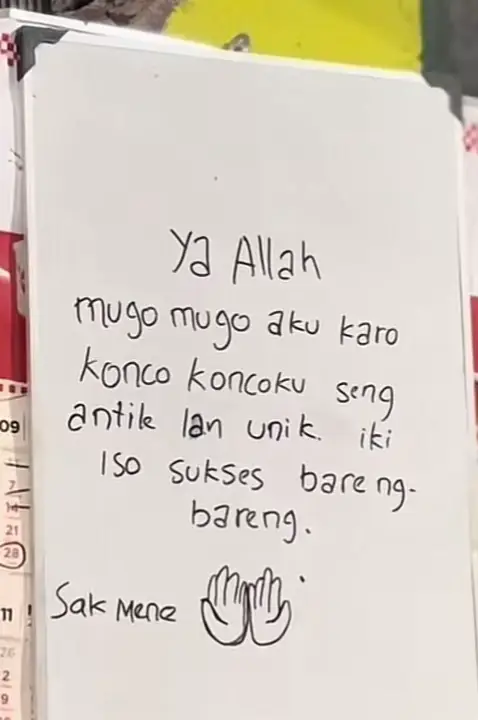 Ya Allah
mugo mugo aku karo
konco koncoku seng
antik lan unik. iki
iso sukses bareng-
bareng.
Sak Mene
09
7
14
21
28
11
26
2
9